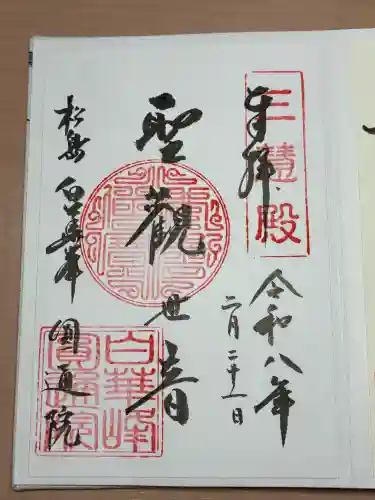 奉拝
三慧殿
令和八年
二月二十一日
聖觀世音
松島 白華峰 圓通院
白華峰
圓通院